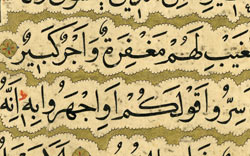 لَهُمْ مَغْفِرَةٌ وَاَجْرٌ كَبِيرٌ
سِرُّوا قَوْلَكُمْ اَوِ اجْهَرُوا بِهٖ اِنَّهُ